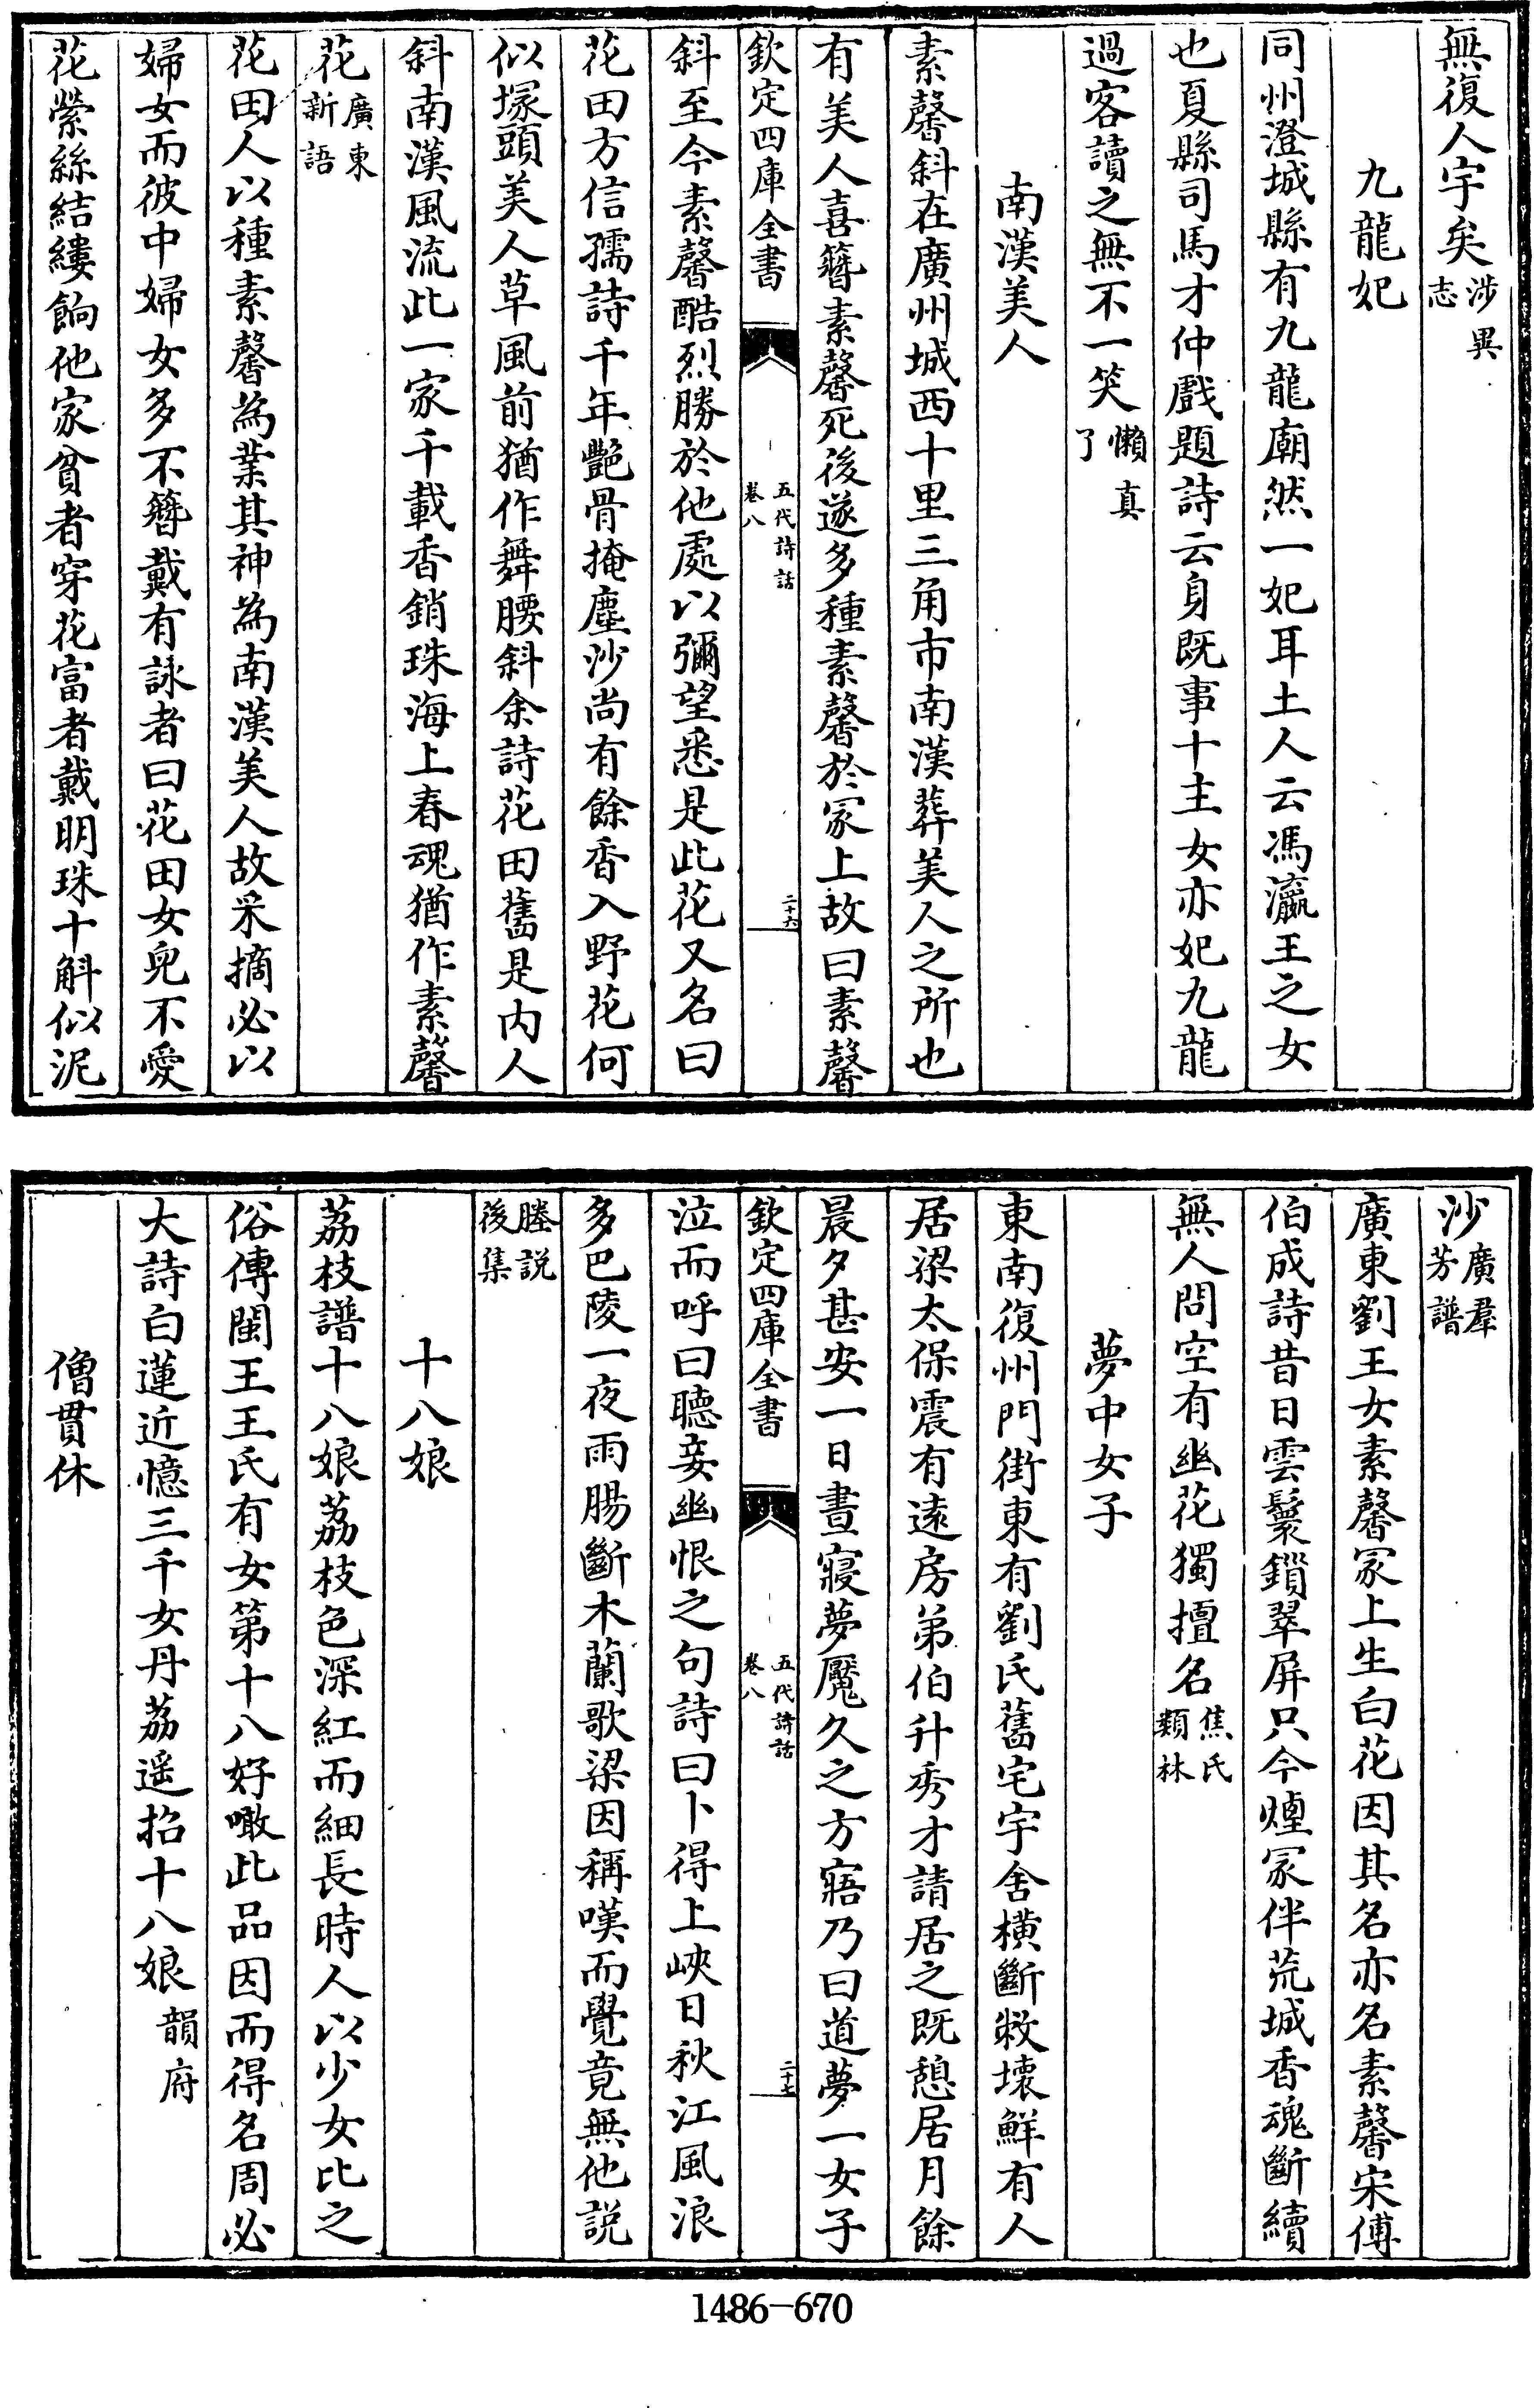 無復人宇矣涉異志
九龍妃
同州澄城縣有九龍廟然一妃耳土人云馮瀛王之女
也夏縣司馬才仲戲題詩云身既事十主女亦妃九龍
過客讀之無不一笑懶真了
南漢美人
素馨斜在廣州城西十里三角市南漢葬美人之所也
有美人喜簪素馨死後遂多種素馨於冢上故曰素馨
欽定四庫全書
五代詩話
卷八
二十六
斜至今素馨酷烈勝於他處以彌望悉是此花又名曰
花田方信孺詩千年艷骨掩塵沙尚有餘香入野花何
似塚頭美人草風前猶作舞腰斜余詩花田舊是內人
斜南漢風流此一家千載香銷珠海上春魂猶作素馨
花廣東新語
花田人以種素馨為業其神為南漢美人故采摘必以
婦女而彼中婦女多不簪戴有詠者曰花田女兒不愛
花縈絲結縷餉他家貧者穿花富者戴明珠十斛似泥
沙廣羣芳譜
廣東劉王女素馨冢上生白花因其名亦名素馨宋傅
伯成詩昔日雲鬟鎖翠屏只今煙冢伴荒城香魂斷續
無人問空有幽花獨擅名焦氏類林
夢中女子
東南復州門街東有劉氏舊宅宇舍橫斷救壞鮮有人
居梁太保震有遠房弟伯升秀才請居之既憩居月餘
晨夕甚安一日晝寢夢魘久之方寤乃曰道夢一女子
欽定四庫全書
五代詩話
卷八
二十七
泣而呼曰聽妾幽恨之句詩曰卜得上峽日秋江風浪
多巴陵一夜雨腸斷木蘭歌梁因稱嘆而覺竟無他說
塵説後集
十八娘
荔枝譜十八娘荔枝色深紅而細長時人以少女比之
俗傳閩王王氏有女第十八好噉此品因而得名周必
大詩白蓮近憶三千女丹荔遥招十八娘韻府
僧貫休
1486-670